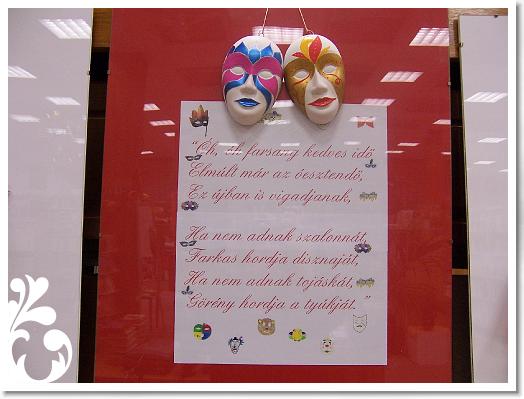 "Óh, óh farsang kedves idő
Elmúlt már az óesztendő,
Ez újban is vigadjanak,
Ha nem adnak szalonnát,
Farkas hordja disznaját,
Ha nem adnak tojáskát,
Görény hordja a tyúkját."